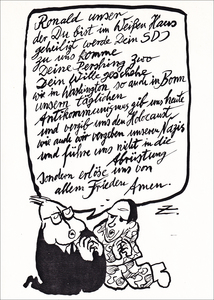 Ronald unser
der Du bist im Weißen Haus
geheiligt werde Dein SDI
zu uns komme
Deine Pershing Zwo
Dein Wille geschehe
wie in Washington so auch in Bonn
unsern täglichen
Antikommunismus gib uns heute
und vergib uns den Holocaust
wie auch wir vergeben unseren Nazis
und führe uns nicht in die
Abrüstung
sondern erlöse uns von
allem Frieden. Amen.